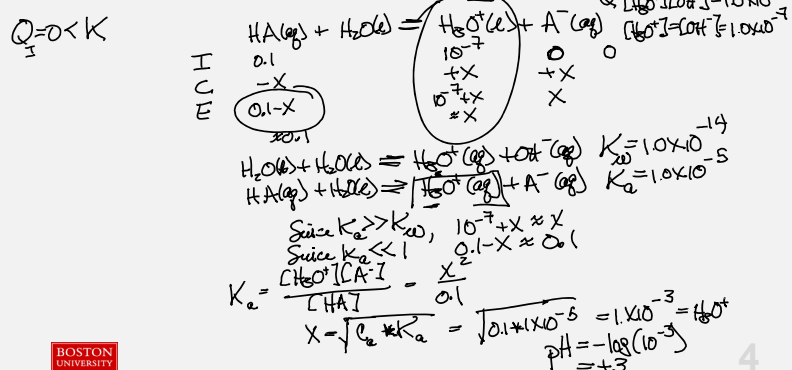 [H₃O⁺][OH⁻]=1.0×10
[H₃O⁺]=[OH⁻]=1.0×10⁻⁷
Q=0<K
I
HA(aq) + H₂O(l) ⇌ H₃O⁺(l) + A⁻(aq)
I 0.1 10⁻⁷ 0 0
C -X +X +X
E 0.1-X 10⁻⁷+X X
≈0.1 ≈X
H₂O(l)+H₂O(l) ⇌ H₃O⁺(aq)+OH⁻(aq) K_w=1.0×10⁻¹⁴
HA(aq)+H₂O(l) ⇌ H₃O⁺(aq)+A⁻(aq) K_a=1.0×10⁻⁵
Since K_a>>K_w, 10⁻⁷+X≈X
Since K_a<<1 0.1-X≈0.1
K_a = [H₃O⁺][A⁻]/[HA] = X²/0.1
X=√(C_a*K_a) = √(0.1*1×10⁻⁵) = 1.×10⁻³ = H₃O⁺
pH=-log(10⁻³)
=+3
BOSTON
UNIVERSITY
4